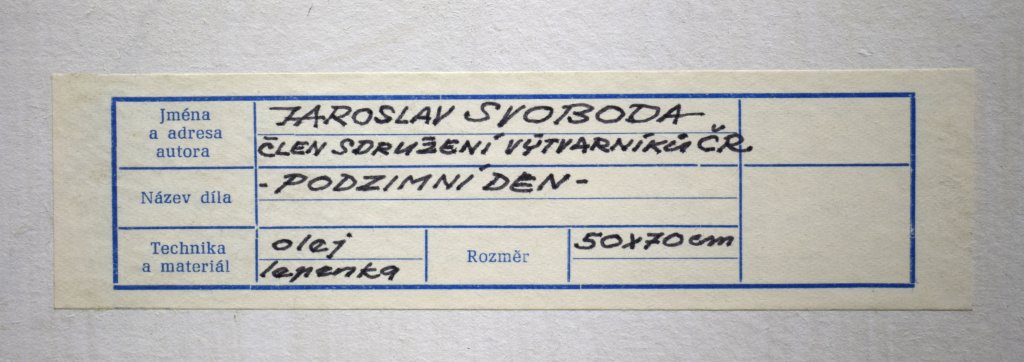 Jména
a adresa
autora
JAROSLAV SVOBODA
ČLEN SDRUŽENÍ VÝTVARNÍKŮ ČR.
Název díla
- PODZIMNÍ DEN -
Technika
a materiál
olej
lepenka
Rozměr
50x70cm